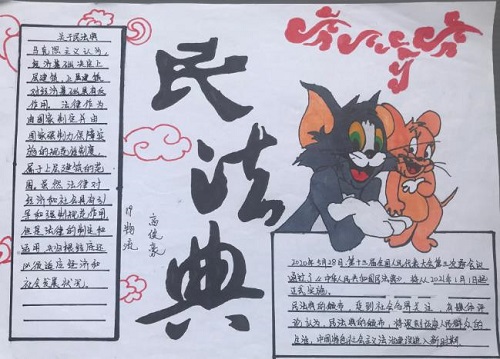 关于民法典
马克思主义认为,
经济基础决定上
层建筑,上层建筑
对经济基础具有反
作用。法律作为
由国家制定并由
国家强制力保障实
施的规范性制度,
属于上层建筑的范
围。虽然法律对
经济和社会具有引
导和强制规范作用,
但是法律的制定和
运用
以便适应经济和
社会发展状况。
民法典
物流
高俊豪
2020年5月28日,第十三届全国人民代表大会第三次会议
通过了《中华人民共和国民法典》将从2021年1月1日起
正式实施。
民法典的颁布,受到社会各界关注
认为,民法典的颁布,将深刻影响人民群众的
生活,中国特色社会主义法治建设进入新时期